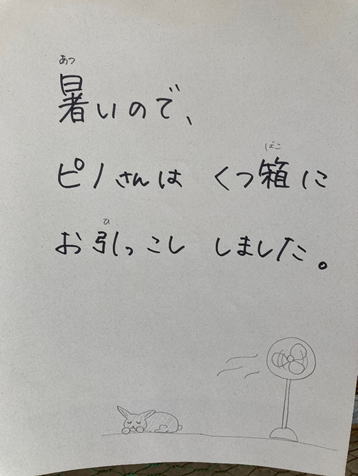 暑いので、
ピノさんは くつ箱に
お引っこし しました。
あつ
ばこ
ひ